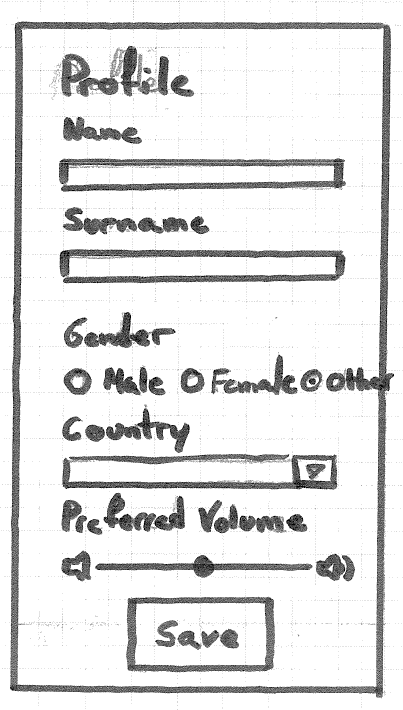 Profile
Name
Surname
Gender
Male Female Other
Country
Preferred Volume
Save